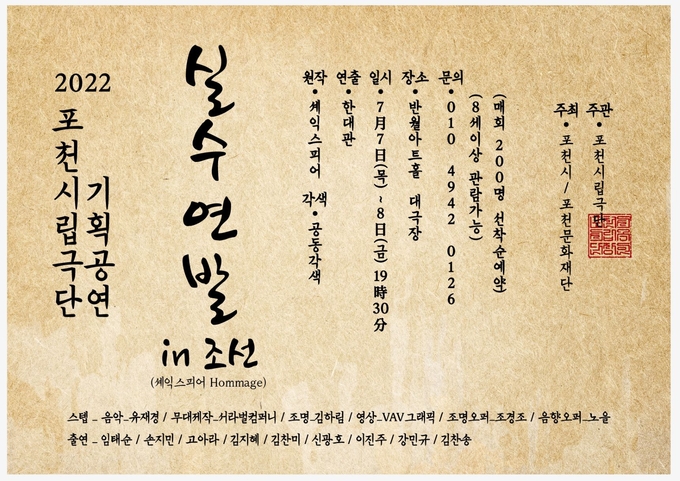 2022
포천시립극단
기획공연
실수연발
in 조선
(셰익스피어 Hommage)
원작 • 셰익스피어 각색 • 공동각색
연출 • 한대관
일시 • 7月7日(목) ~ 8日(금) 19時30分
장소 • 반월아트홀 대극장
문의 • 010 4942 0126
(8세이상 관람가능)
(매회 200명 선착순예약)
주최 • 포천시 / 포천문화재단
주관 • 포천시립극단
스텝 _ 음악_유재경 / 무대제작_서라벌컴퍼니 / 조명_김하림 / 영상_VAV그래픽 / 조명오퍼_조경조 / 음향오퍼_노을
출연 _ 임태순 / 손지민 / 고아라 / 김지혜 / 김찬미 / 신광호 / 이진주 / 강민규 / 김찬송